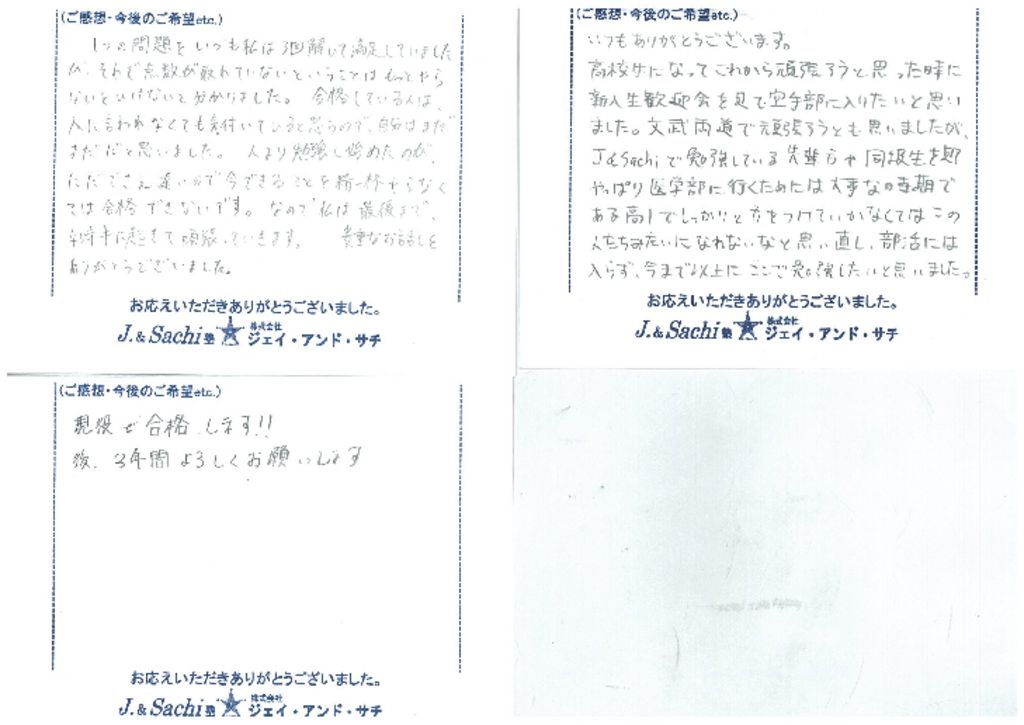 (ご感想・今後のご希望etc.)
1つの問題をいつも私は3回解いて満足していました
が、それで点数が取れていないということはもっとやら
ないといけないと分かりました。合格している人は、
人に言われなくても気付いていると思うので、自分はまだ
まだだと思いました。人より勉強し始めたのが、
ただでさえ遅いので今できることを精一杯やらなく
ては合格できないです。なので私は最後まで、
頑張っていきます。貴重なお話しを
ありがとうございました。
お応えいただきありがとうございました。
J.&Sachi塾 株式会社 ジェイ・アンド・サチ
(ご感想・今後のご希望etc.)
いつもありがとうございます。
高校生になってこれから頑張ろうと思った時に
新入生歓迎会を見て空手部に入りたいと思い
ました。文武両道で頑張ろうとも思いましたが、
J&Sachiで勉強している先輩方や同級生を
やっぱり医学部に行くためには大事なの時期で
ある高1でしっかりと力をつけていかなくてはこの
人たちみたいになれないなと思い直し、部活には
入らず、今まで以上にここで勉強したいと思いました。
お応えいただきありがとうございました。
J.&Sachi塾 株式会社 ジェイ・アンド・サチ
(ご感想・今後のご希望etc.)
現役で合格します!!
後、3年間よろしくお願いします
お応えいただきありがとうございました。
J.&Sachi塾 株式会社 ジェイ・アンド・サチ